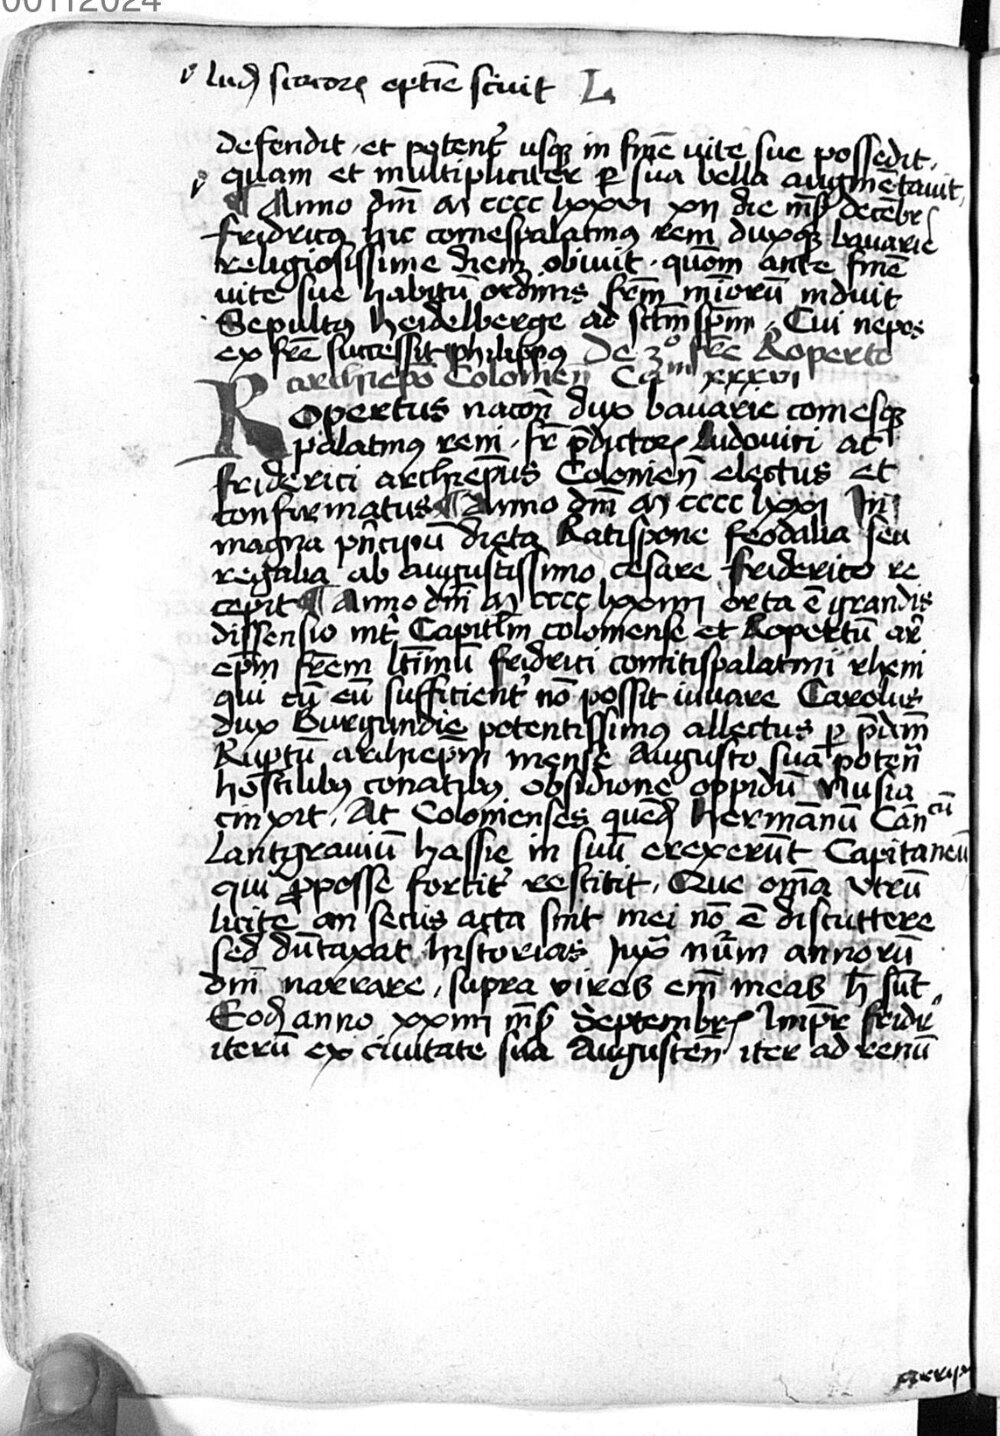 00112024
lud scacorum optīe scivit L
defendit, et potent usq in finē vite sue possedit,
quam et multipliciter p sua bella augmētavit,
Anno dm̄ M cccc lxxvi xii die mēs decēbr
fridricus hic comespalatinus reni duxq bavarie
religiosissime diem obivit, quom ante finē
vite sue habitū ordinis frm̄ minorū induit
Sepultus heidelberge ad sctm̄ spm̄, Cui nepos
ex frē successit philippus De 3o frē Roperto
archiepo Colonien Cam xxxvi
Ropertus nacōn dux bavarie comesq
palatinus reni, fr pdictor Ludovici ac
friderici archiepus Colonien electus et
confirmatus Anno dm̄ M cccc lxxi In
magna pncipū dieta Ratispone feodalia seu
regalia ab augustissimo cesare friderico re
cepit Anno dm̄ M cccc lxxiiii orta ē grandis
dissensio int Capitlm coloniense et Ropertū ar
epm frem ltimū fridrici comitispalatini rheni
qui cū eū sufficient nō possit iuvare Carolus
dux Burgundie potentissimus allectus p pdm̄
Ruptū archiepm mense Augusto sua poten
hostilibus conatibus obsidione oppidū Nusia
cinxit, At Colonienses quend hermanū Can cū
Lantgraviū hassie in suū erexerūt Capitaneū
qui pposse fortit restitit, Que om̄a utrū
licite an secus acta sint mei nō ē discuttere
sed dūtaxat historias Juxᵃ nūm annorū
dm̄ narrare, supra vires em meas h sūt,
Eod anno xxiiii mēs Septembr Impr fridr
iterū ex civitate sua Augusten iter ad renū
arrip